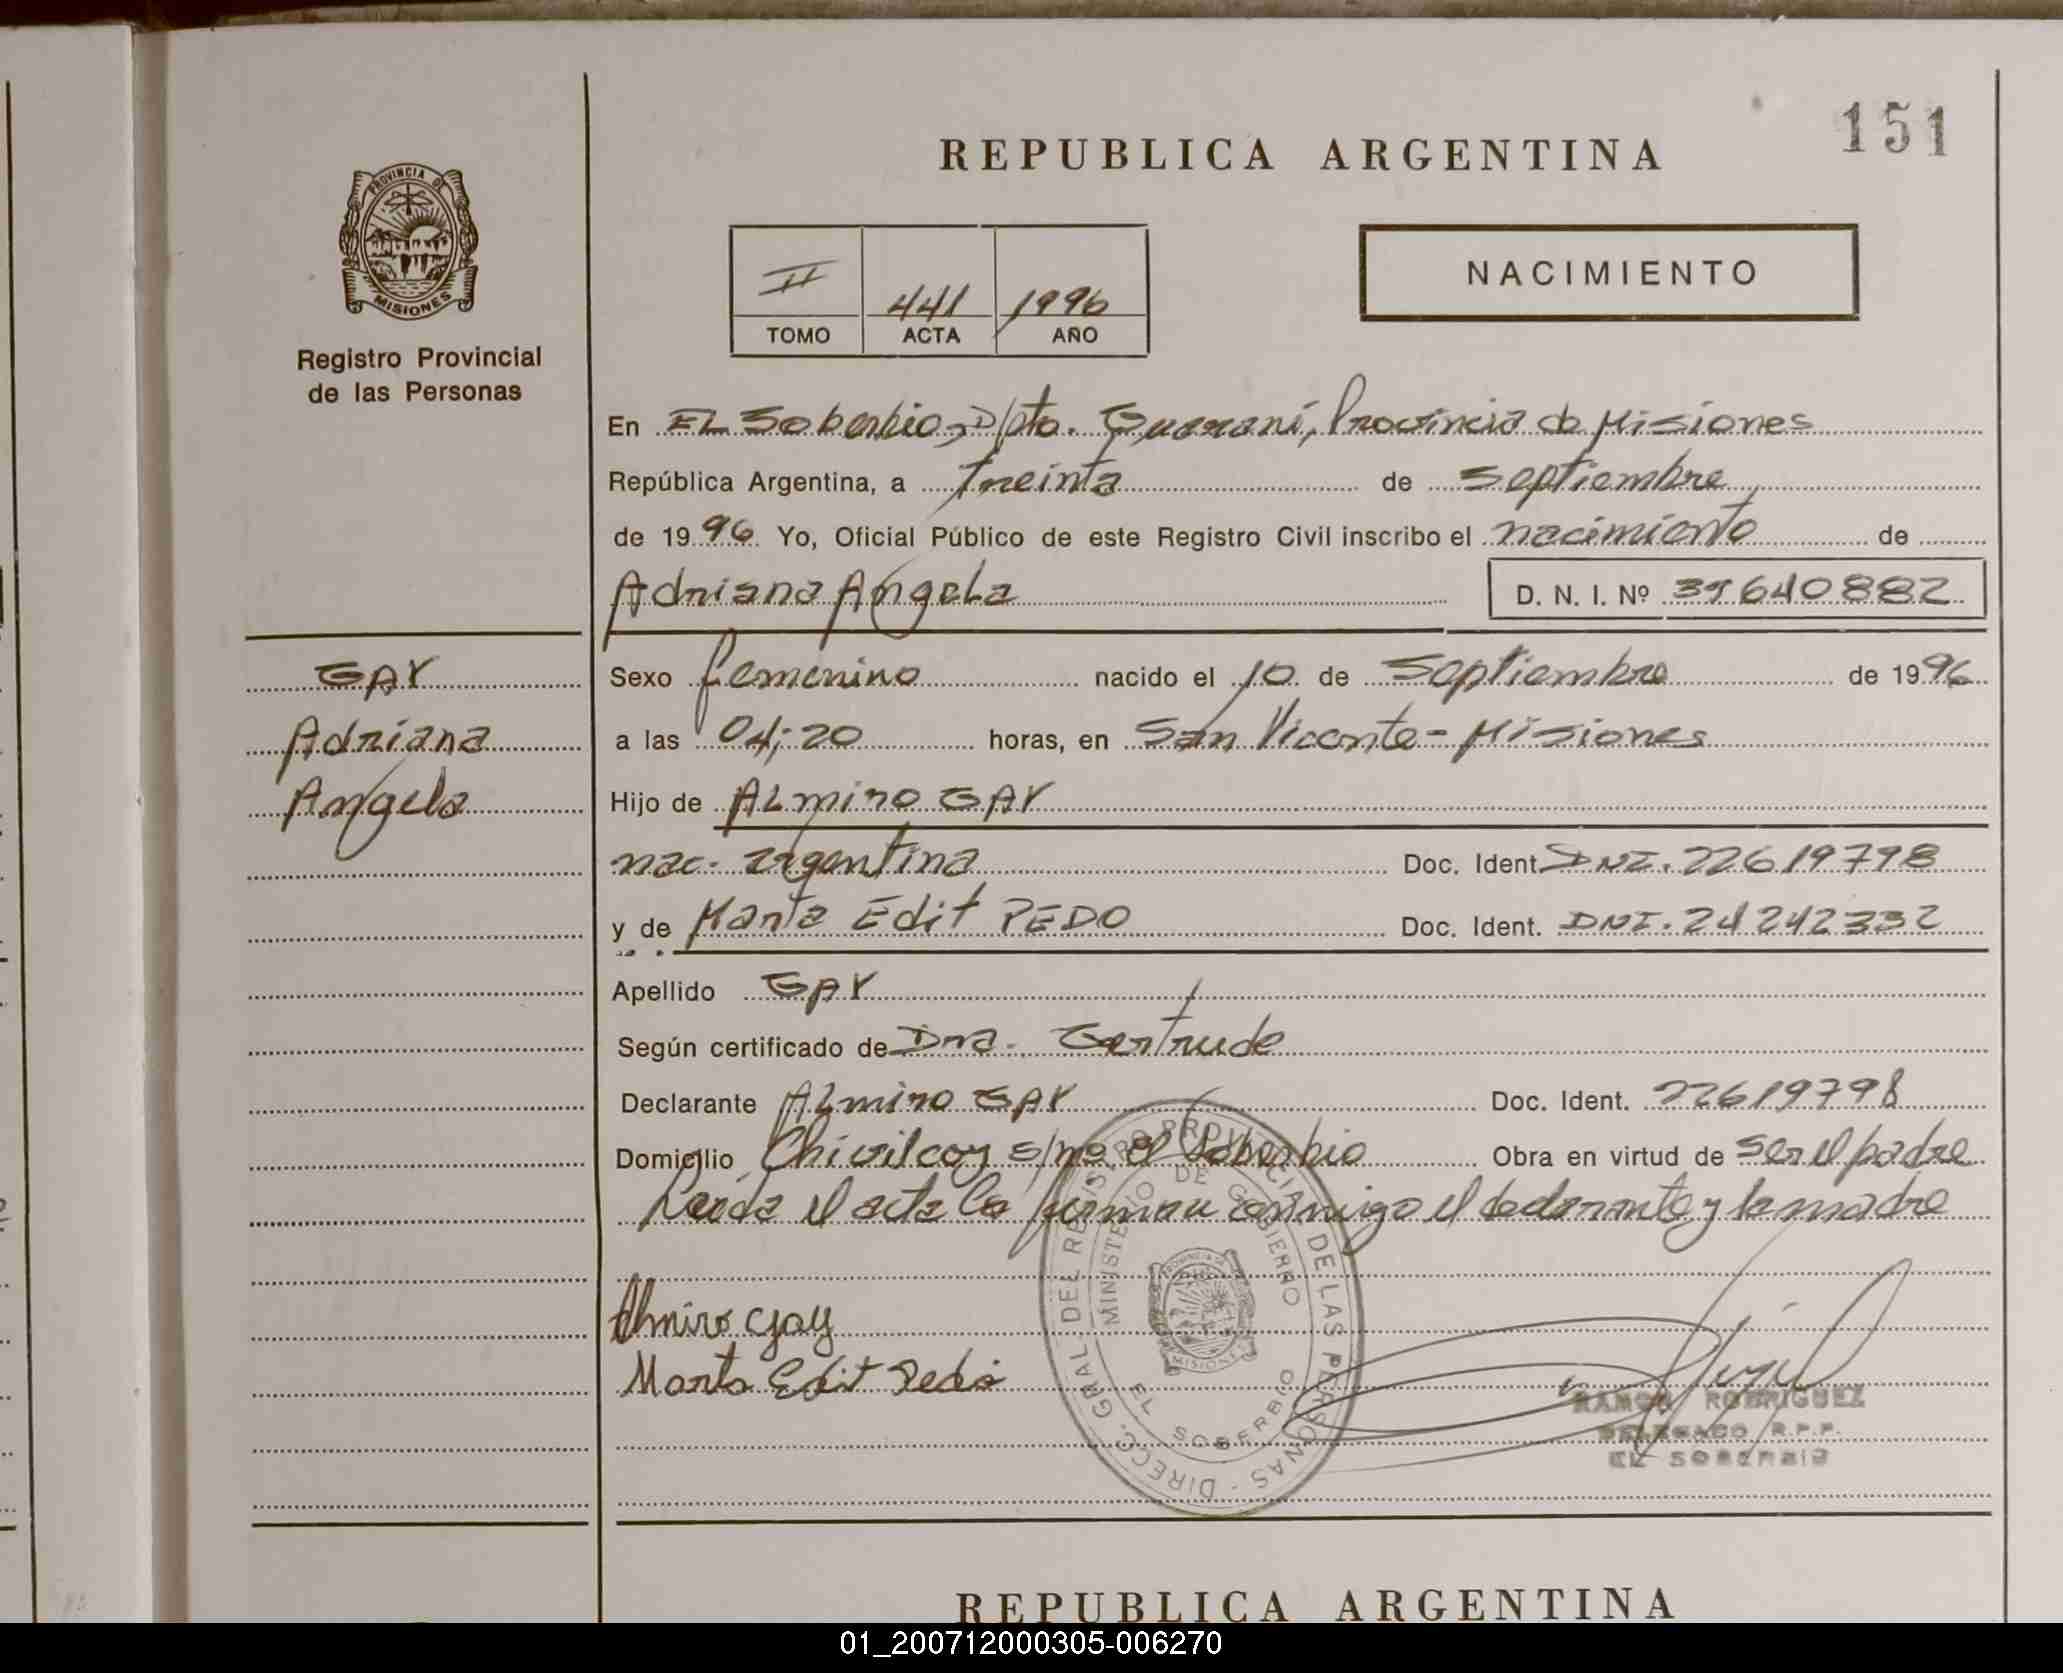 151
REPUBLICA ARGENTINA
PROVINCIA DE
MISIONES
Registro Provincial
de las Personas
II 441 1996
TOMO ACTA AÑO
NACIMIENTO
En EL Soberbio, D/pto. Guaraní, Provincia de Misiones
República Argentina, a treinta de septiembre
de 1996 Yo, Oficial Público de este Registro Civil inscribo el nacimiento de
Adriana Angela D. N. I. Nº 39640882
GAY
Adriana
Angela
Sexo femenino nacido el 10 de septiembre de 1996
a las 04;20 horas, en San Vicente - Misiones
Hijo de ALmiro GAY
nac. argentina Doc. Ident. DNI. 22619798
y de Marta Edit PEDO Doc. Ident. DNI. 24242332
Apellido GAY
Según certificado de Dra. Gertrude
Declarante ALmiro GAY Doc. Ident. 22619798
Domicilio Chivilcoy s/no. el Soberbio Obra en virtud de ser el padre
Leída el acta la firman conmigo el declarante y la madre
Almiro Gay
Marta Edit Pedó
DIRECC. GRAL. DEL REGISTRO PROVINCIAL DE LAS PERSONAS
MINISTERIO DE GOBIERNO
EL SOBERBIO
PROVINCIA DE
MISIONES
RAMON RODRIGUEZ
DELEGADO R.P.P.
EL SOBERBIO
REPUBLICA ARGENTINA
01_200712000305-006270